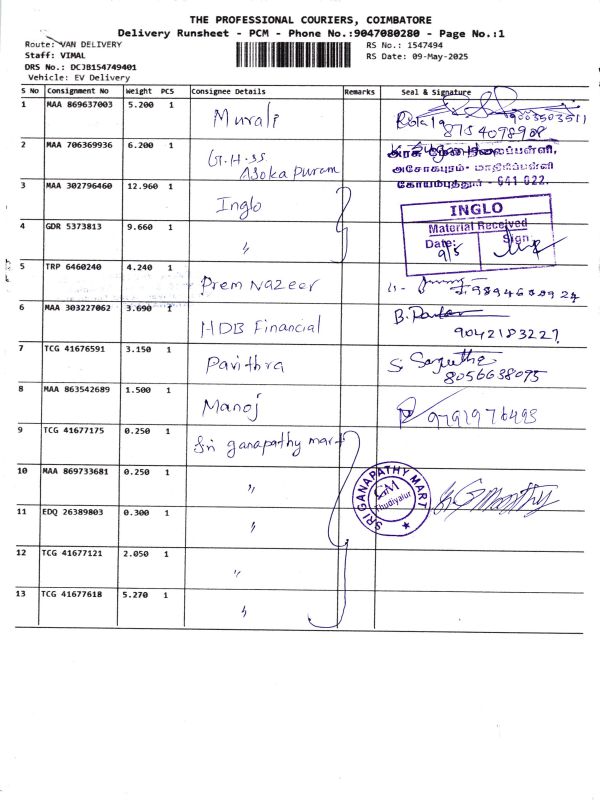 THE PROFESSIONAL COURIERS, COIMBATORE
Delivery Runsheet - PCM - Phone No.:9047080280 - Page No.:1
Route: VAN DELIVERY
RS No.: 1547494
Staff: VIMAL
RS Date: 09-May-2025
DRS No.: DCJB154749401
Vehicle: EV Delivery
S No Consignment No Weight PCS Consignee Details Remarks Seal & Signature
1 MAA 869637003 5.200 1 Murali
9003503511
8754098908
2 MAA 706369936 6.200 1 G.H.SS
Asoka puram
அரசு மேனிலைப்பள்ளி,
அசோகபுரம்- மாதிரிப்பள்ளி
கோயம்புத்தூர் - 641 022.
3 MAA 302796460 12.960 1 Inglo
4 GDR 5373813 9.660 1 "
INGLO
Material Received
Date: 9/5 Sign
5 TRP 6460240 4.240 1 Prem Nazeer
6 MAA 303227062 3.690 1 HDB Financial
9042183227
7 TCG 41676591 3.150 1 Pavithra
8056638095
8 MAA 863542689 1.500 1 Manoj
9791976493
9 TCG 41677175 0.250 1 Sri ganapathy mart
10 MAA 869733681 0.250 1 "
SRI GANAPATHY MART
GM
Thudiyalur
11 EDQ 26389803 0.300 1 "
12 TCG 41677121 2.050 1 "
13 TCG 41677618 5.270 1 "